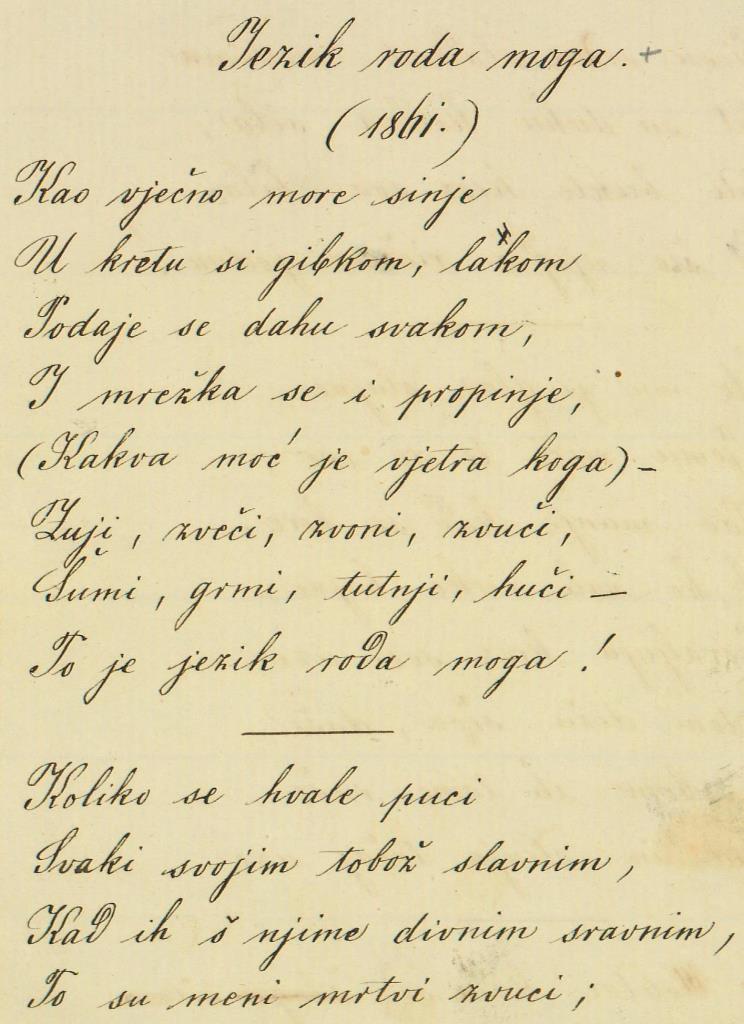 Jezik roda moga. +
(1861.)
Kao vječno more sinje
U kretu si gibkom, lakom
Podaje se dahu svakom,
I mrežka se i propinje,
(Kakva moć je vjetra koga) –
Zuji, zveči, zvoni, zvuči,
Šumi, grmi, tutnji, huči –
To je jezik roda moga!
Koliko se hvale puci
Svaki svojim tobož slavnim,
Kad ih š njime divnim sravnim,
To su meni mrtvi zvuci;